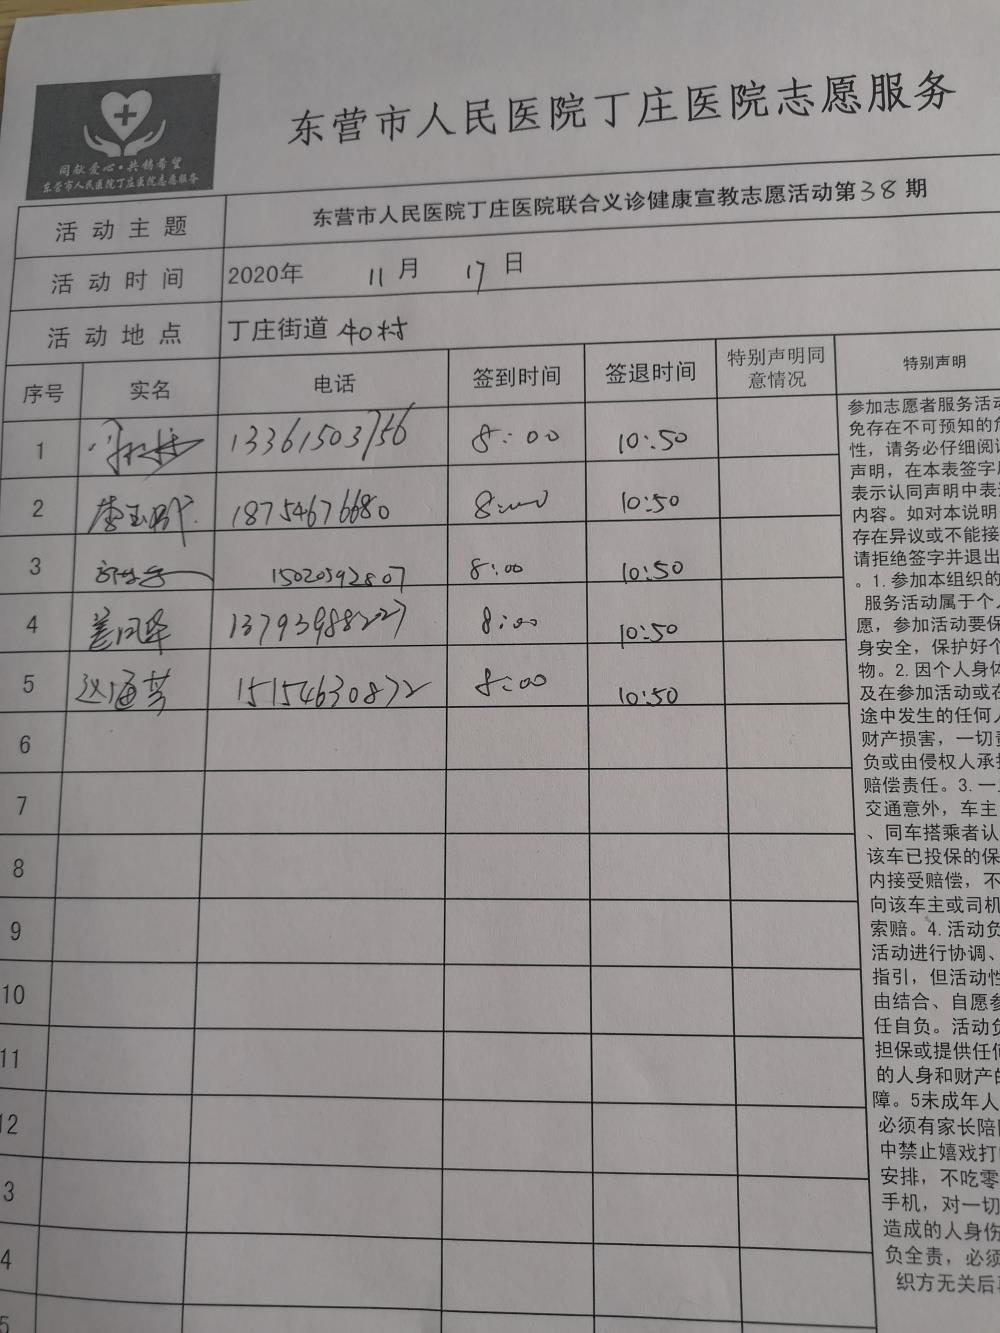 同献爱心·共铸希望
东营市人民医院丁庄医院志愿服务
东营市人民医院丁庄医院志愿服务
活动主题 东营市人民医院丁庄医院联合义诊健康宣教志愿活动第38期
活动时间 2020年 11月 17日
活动地点 丁庄街道 牛口村
序号 实名 电话 签到时间 签退时间 特别声明同意情况 特别声明
1 13361503756 8:00 10:50
2 18754676680 8:00 10:50
3 15020592807 8:00 10:50
4 13793988227 8:00 10:50
5 赵海芹 15154630872 8:00 10:50
6
7
8
9
10
11
12
3
4
5
参加志愿者服务活动
免存在不可预知的危
性，请务必仔细阅读
声明，在本表签字后
表示认同声明中表述
内容。如对本说明
存在异议或不能接
请拒绝签字并退出
。1.参加本组织的
服务活动属于个人
愿，参加活动要保
身安全，保护好个
物。2.因个人身体
及在参加活动或在
途中发生的任何人
财产损害，一切责
负或由侵权人承担
赔偿责任。3.一旦
交通意外，车主
、同车搭乘者认
该车已投保的保
内接受赔偿，不
向该车主或司机
索赔。4.活动负
活动进行协调、
指引，但活动性
由结合、自愿参
任自负。活动负
担保或提供任何
的人身和财产的
障。5未成年人
必须有家长陪同
中禁止嬉戏打
安排，不吃零
手机，对一切
造成的人身伤
负全责，必须
织方无关后